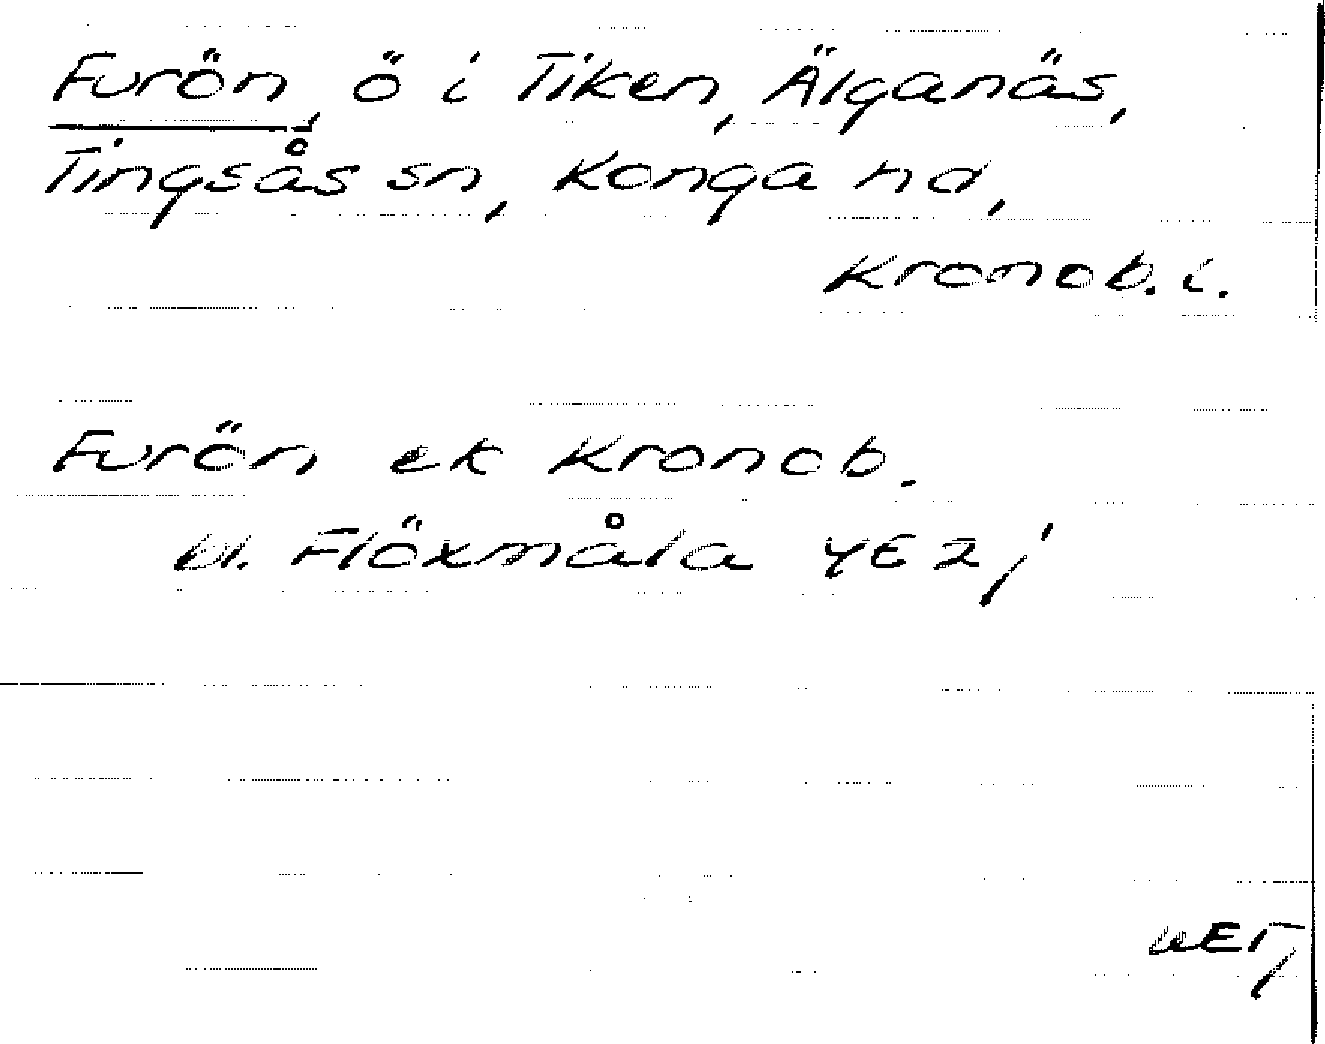 Furön, ö i Tiken, Älganäs,
Tingsås sn, Konga hd,
Kronob. l.
Furön ek Kronob.
bl. Flöxmåla 4E2j